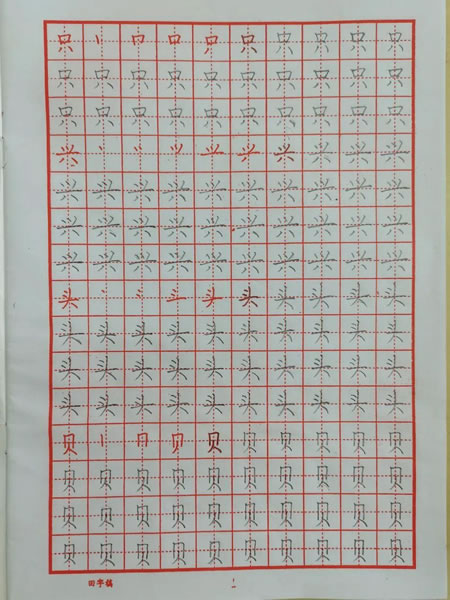 只 丨 冂 口 只 只 只 只 只
只 只 只 只 只 只 只 只 只 只
只 只 只 只 只 只 只 只 只 只
兴 丶 ⺍ 兴 兴 兴 兴
兴 兴 兴 兴 兴 兴 兴 兴 兴 兴
兴 兴 兴 兴 兴 兴 兴 兴 兴 兴
兴 兴 兴 兴 兴 兴 兴 兴 兴 兴
头 丶 头 头 头 头 头
头 头 头 头 头 头 头 头 头 头
头 头 头 头 头 头 头 头 头 头
头 头 头 头 头 头 头 头 头 头
贝 丨 冂 贝 贝 贝 贝 贝 贝
贝 贝 贝 贝 贝 贝 贝 贝 贝 贝
贝 贝 贝 贝 贝 贝 贝 贝 贝 贝
贝 贝 贝 贝 贝 贝 贝 贝 贝 贝
田字稿